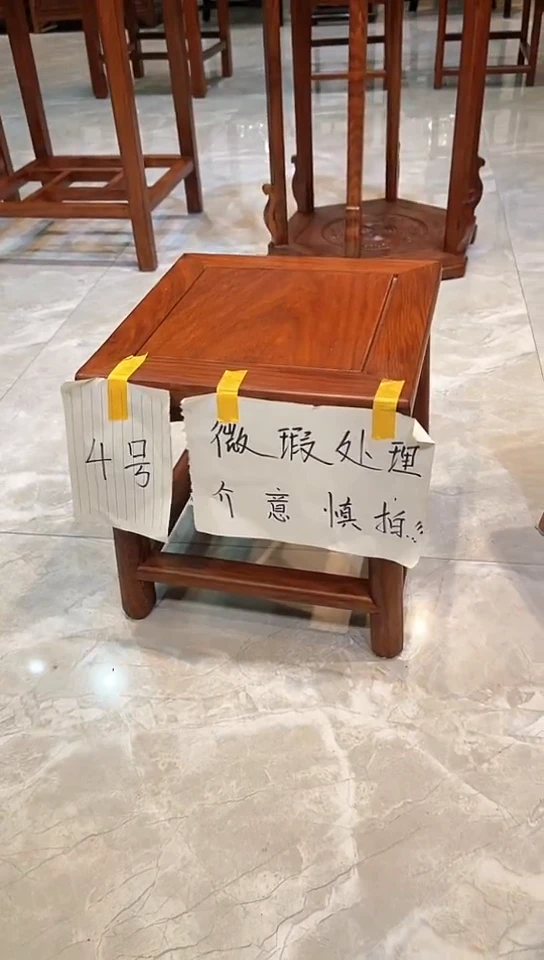 4号
微瑕处理
介意慎拍